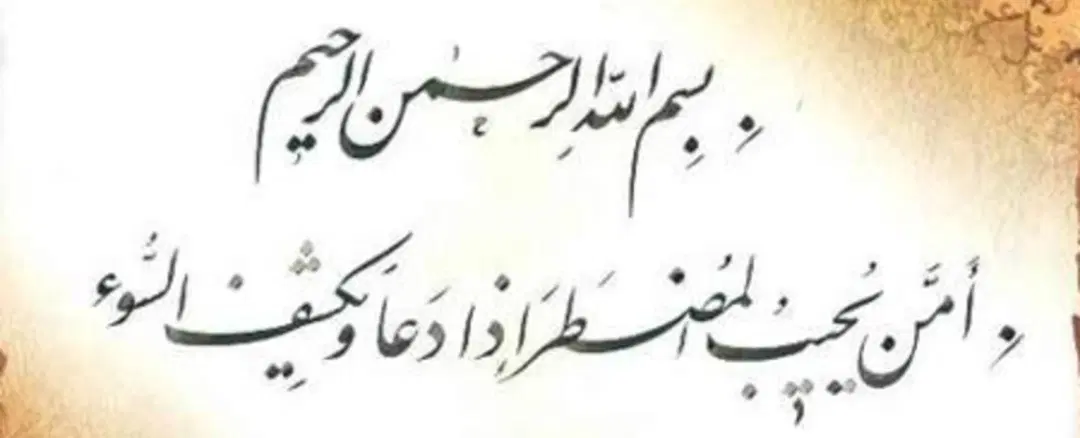 بِسِمِ اللّٰهِ الرِحمٰن الرحیم
أمَّن یُجیبُ المُضطَرَ اِذا دَعاَ وَیکشِف السُّوء